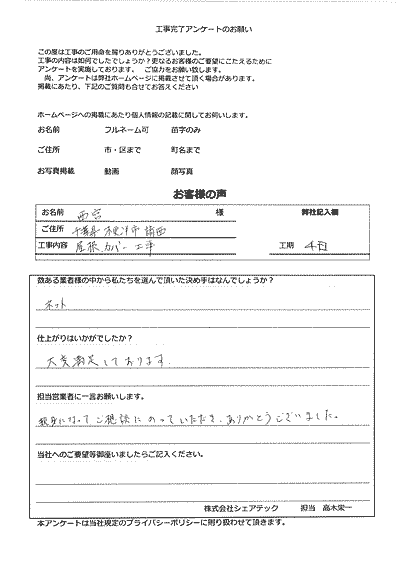 工事完了アンケートのお願い
この度は工事のご用命を賜りありがとうございました。
工事の内容は如何でしたでしょうか？更なるお客様のご要望にこたえるために
アンケートを実施しております。　ご協力をお願い致します。
尚、アンケートは弊社ホームページに掲載させて頂く場合があります。
掲載にあたり、下記のご質問も合せてお答えください
ホームページへの掲載にあたり個人情報の記載に関してお伺いします。
お名前　フルネーム可　苗字のみ
ご住所　市・区まで　町名まで
お写真掲載　動画　顔写真
お客様の声
お名前　西宮　様　弊社記入欄
ご住所　千葉県木更津市請西
工事内容　屋根カバー工事　工期　4日
数ある業者様の中から私たちを選んで頂いた決め手はなんでしょうか？
ネット
仕上がりはいかがでしたか？
大変満足しております。
担当営業者に一言お願いします。
親身になってご相談にのっていただき、ありがとうございました。
当社へのご要望等御座いましたらご記入ください。
株式会社シェアテック　担当　高木栄一
本アンケートは当社規定のプライバシーポリシーに則り扱わせて頂きます。